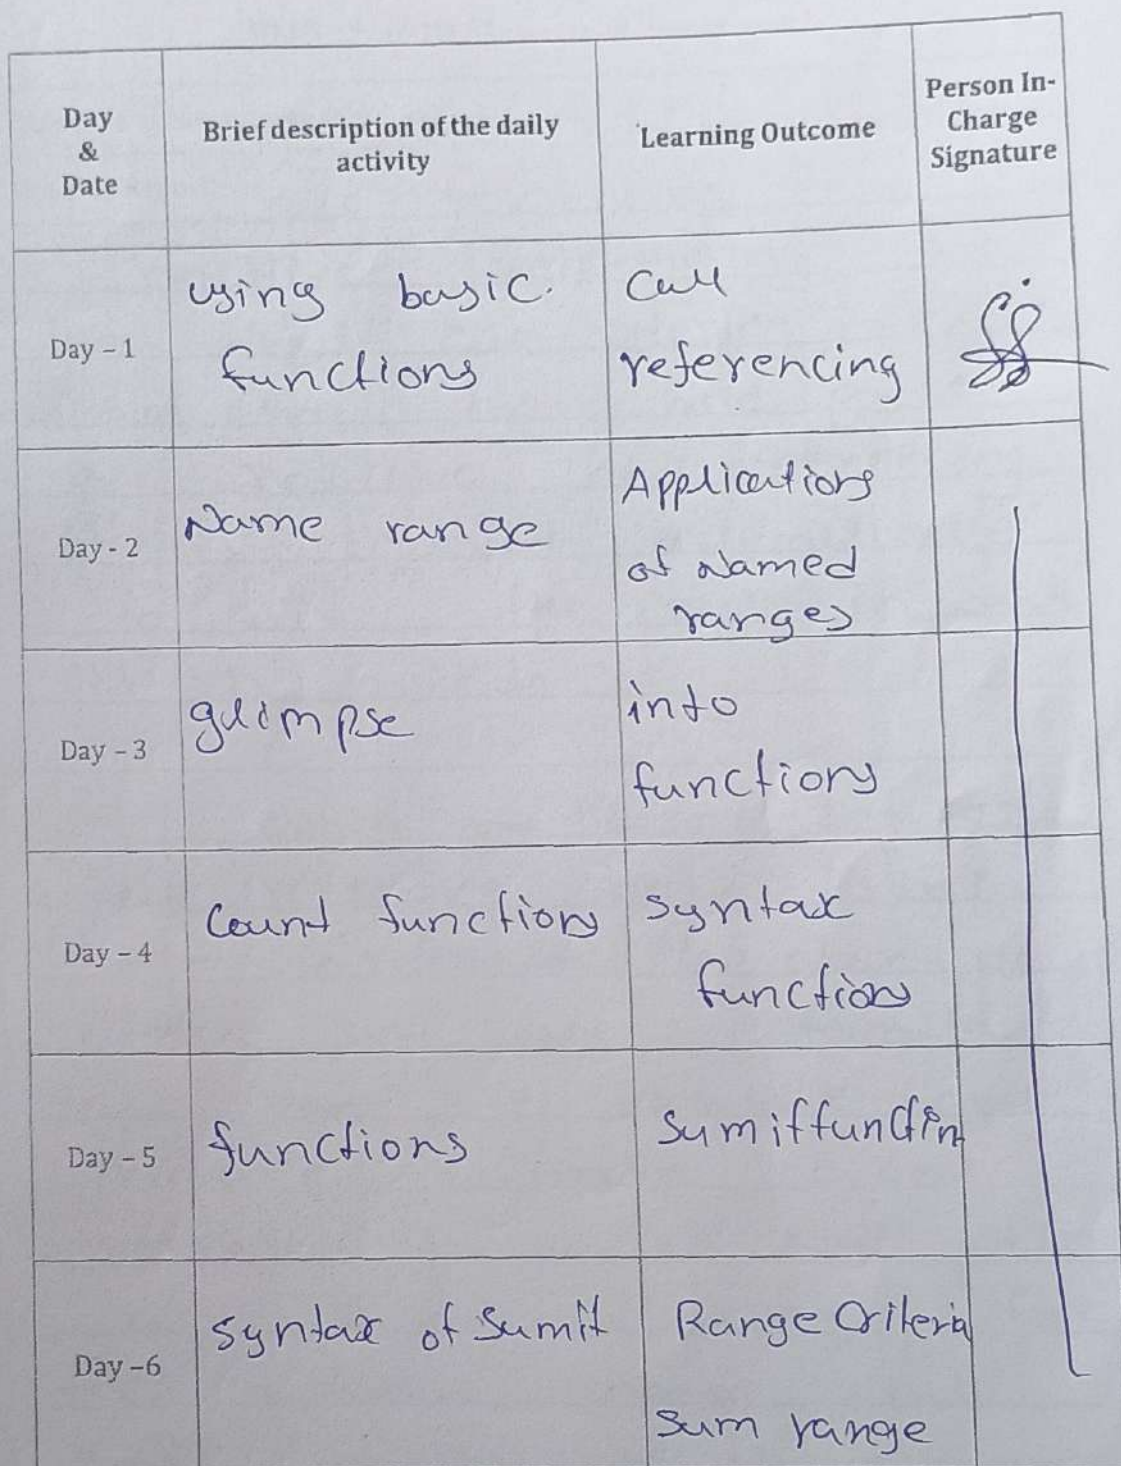 Day
&
Date
Brief description of the daily
activity
Learning Outcome
Person In-
Charge
Signature
Day - 1
using basic.
functions
Cell
referencing
Day - 2
Name range
Applications
of Named
ranges
Day - 3
glimpse
into
functions
Day - 4
Count functions
syntax
functions
Day - 5
functions
Sumiffunctin
Day -6
syntax of Sumif
Range Criteria
sum range